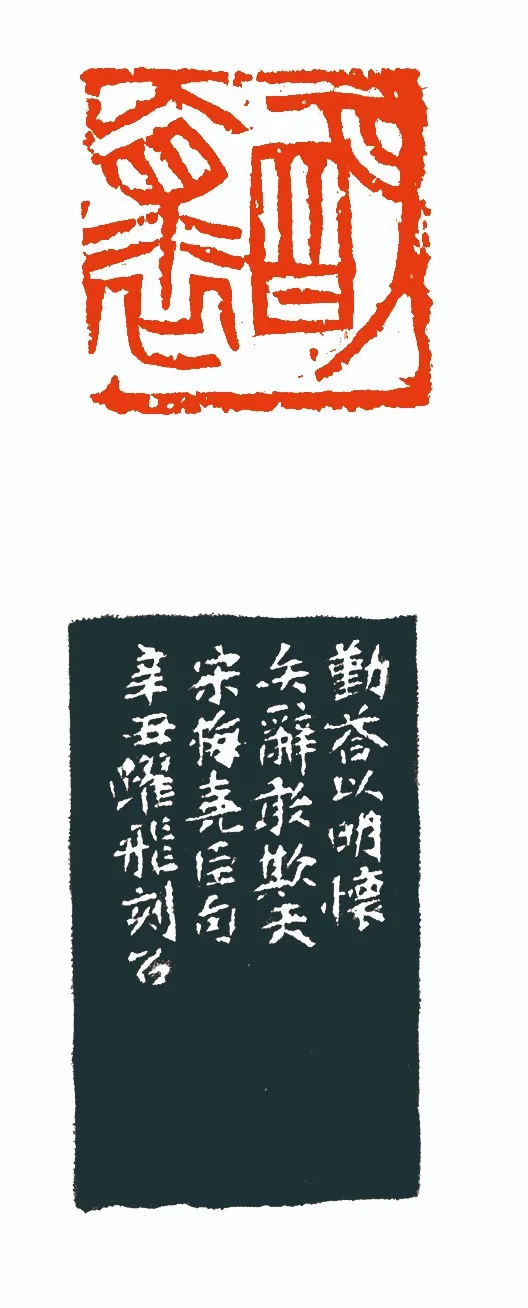 明懷
勤荅以明懷
矢辭敢欺天
宋梅堯臣句
辛丑躍飛刻石